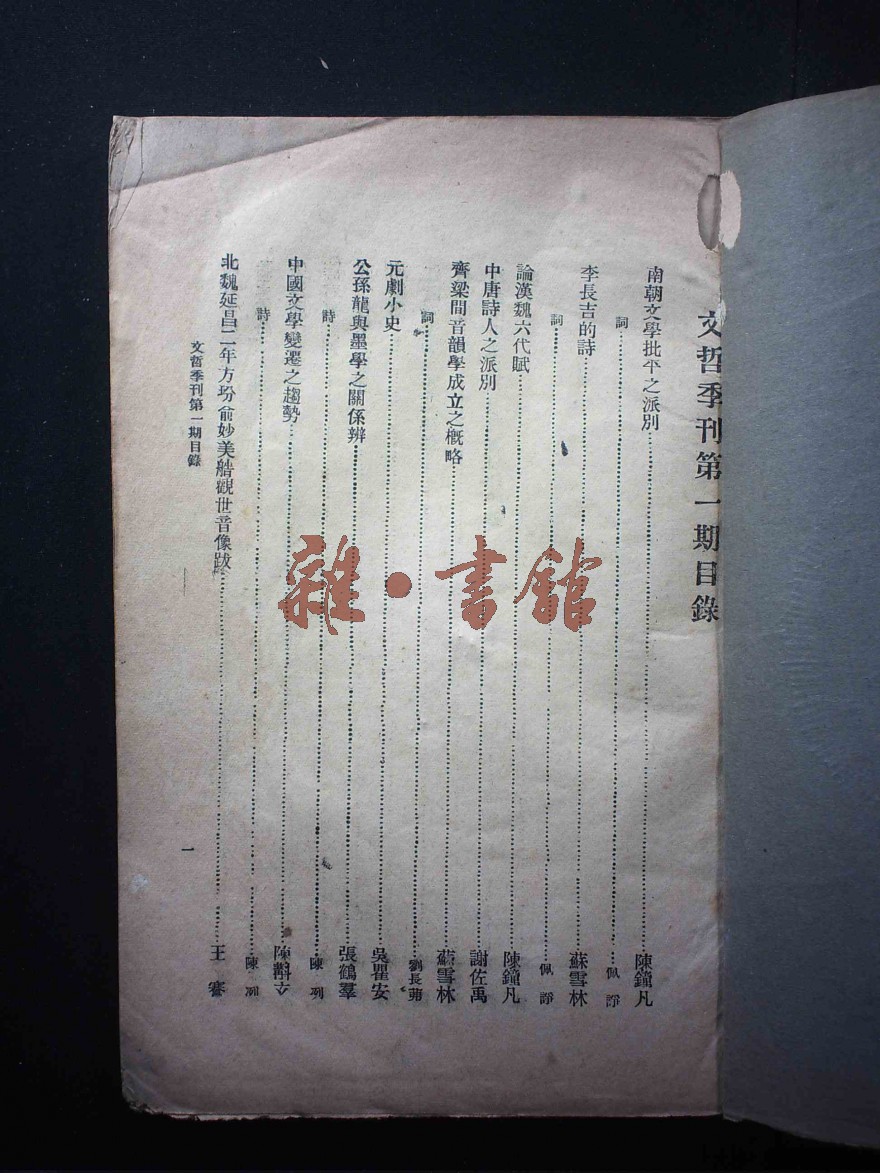 文哲季刊第一期目錄
南朝文學批平之派別……陳鐘凡
詞……佩諍
李長吉的詩……蘇雪林
詞……佩諍
論漢魏六代賦……陳鐘凡
中唐詩人之派別……謝佐禹
齊梁間音韻學成立之概略……蘇雪林
詞……劉長蘅
元劇小史……吳瞿安
公孫龍與墨學之關係辨……張鶴羣
詩……陳列
中國文學變遷之趨勢……陳斠玄
詩……陳列
北魏延昌二年方㘯俞妙美艁觀世音像跋……王謇
文哲季刊第一期目錄
一
雜·書館